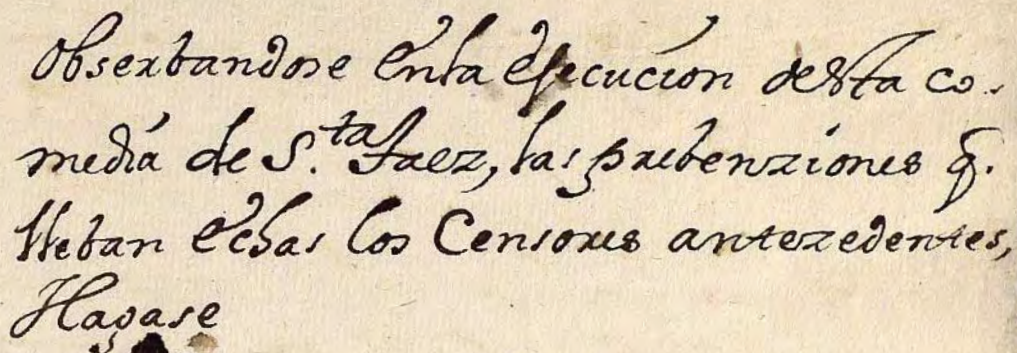 Obserbandose en la ejecucion desta co-
media de S.ta Faez, las prebenziones q.
lleban echas los Censores antezedentes,
Hagase